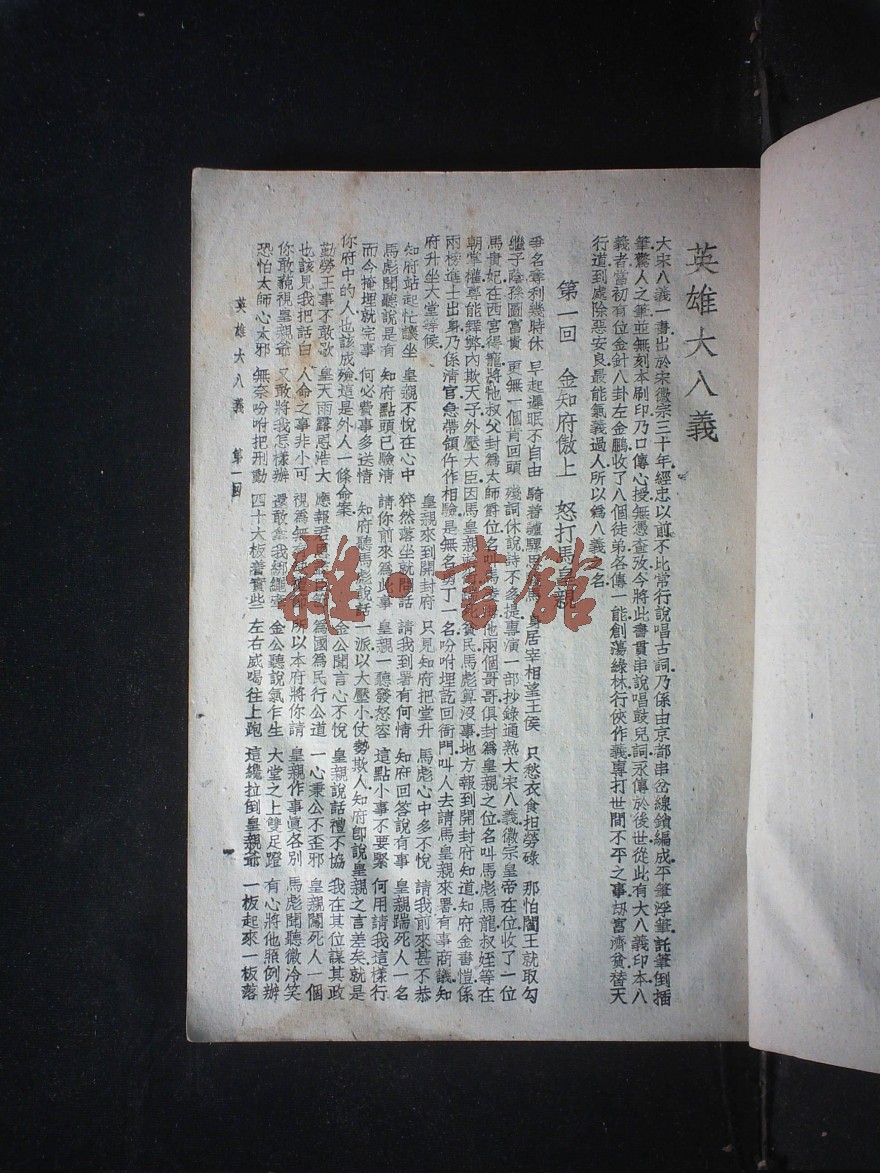 英雄大八義
大宋八義一書出於宋徽宗三十年經忠以前不比常行說唱古詞乃係由京部串岔線鎖編成平筆浮筆託筆倒插
筆驚人之筆並無刻本刷印乃口傳心授無憑查攷今將此書貫串說唱鼓兒詞永傳於後世從此有大八義印本八
義者當初有位金針八卦左金鵬收了八個徒弟各傳一能創蕩綠林行俠作義專打世間不平之事刼富濟貧替天
行道到處除惡安良最能氣義過人所以為八義之名
第一回 金知府傲上 怒打馬皇親
爭名奪利幾時休 早起遲眠不自由 騎着驢騾思 身居宰相望王侯 只愁衣食担勞碌 那怕閻王就取勾
繼子蔭孫圖富貴 更無一個肯回頭 殘詞休說詩不多提專演一部抄錄通熟大宋八義徽宗皇帝在位收了一位
馬貴妃在西宮得寵將他叔父封為太師爵位名叫馬 他兩個哥哥俱封為皇親之位名叫馬彪馬龍叔姪等在
朝掌權專能舞弊內欺天子外壓大臣因馬皇親 貧民馬彪算沒事地方報到開封府知道知府金書愷係
兩榜進士出身乃係清官急帶領仵作相驗是無名男丁一名吩咐埋訖回衙門叫人去請馬皇親來署有事商議知
府升坐大堂等候
皇親來到開封府 只見知府把堂升 馬彪心中多不悅 請我前來甚不恭
知府站起忙讓坐 皇親不悅在心中 猝然落坐就問話 請我到署有何情 知府回答說有事 皇親踹死人一名
馬彪聞聽說是有 知府點頭已驗清 請你前來為此事 皇親一聽發怒容 這點小事不要緊 何用請我這樣行
而今掩埋就完事 何必費事多送情 知府聽馬彪說話一派以大壓小仗勢欺人知府卽說皇親之言差矣就是
你府中的人也該成殮這是外人一條命案 金公聞言心不悅 皇親說話禮不協 我在其位謀其政
勤勞王事不敢歇 皇天雨露恩浩大 應報君恩 為國為民行公道 一心秉公不歪邪 皇親闖死人一個
也該見我把話白 人命之事非小可 視為無 所以本府將你請 皇親作事眞各別 馬彪聞聽微冷笑
你敢藐視皇親爺 又敢將我怎樣辦 還敢拿我綁纒 金公聽說氣乍生 大堂之上雙足蹬 有心將他照例辦
恐怕太師心太邪 無奈吩咐把刑動 四十大板着實些 左右威喝往上跑 這纔拉倒皇親爺 一板起來一板落
英雄大八義 第一回
雜·書館